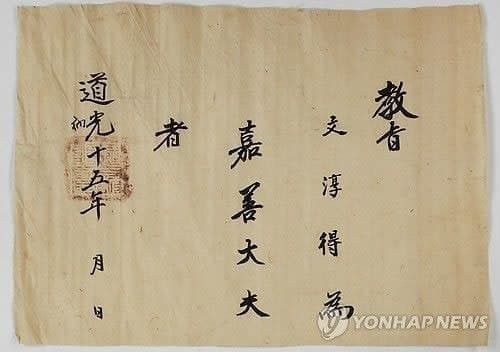 教旨
文淳得為
嘉善大夫
者
道光十五年 月 日
YONHAP NEWS